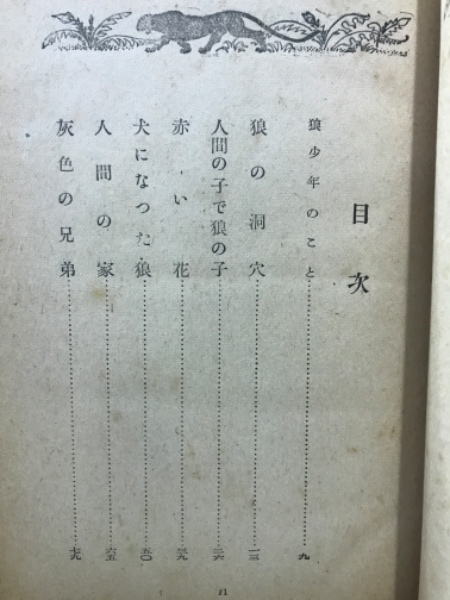 目次
狼少年のこと………九
狼の洞穴………一三
人間の子で狼の子………二六
赤い花………三九
犬になつた狼………五〇
人間の家………六五
灰色の兄弟………七九
11